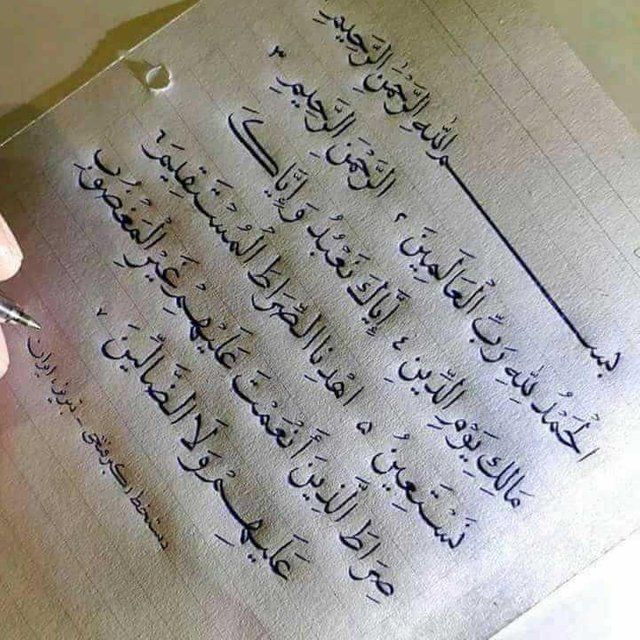 بِسْمِ اللهِ الرَّحْمنِ الرَّحِيمِ
الْحَمْدُ لِلهِ رَبِّ الْعَالَمِينَ ٢ الرَّحْمنِ الرَّحِيمِ ٣
مَالِكِ يَوْمِ الدِّينِ ٤ إِيَّاكَ نَعْبُدُ وَإِيَّاكَ
نَسْتَعِينُ ٥ اهْدِنَا الصِّرَاطَ الْمُسْتَقِيمَ ٦
صِرَاطَ الَّذِينَ أَنْعَمْتَ عَلَيْهِمْ غَيْرِ الْمَغْضُوبِ
عَلَيْهِمْ وَلَا الضَّالِّينَ ٧
دستخط اکبر فتحی - تبریز ایران